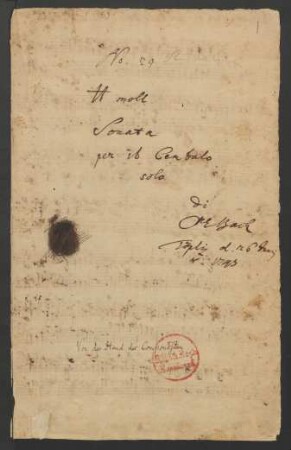 1
No. 59
H moll
Sonata
per il Cembalo
solo
di
CPE Bach
Töpliz d. 26 Jun
1743
Von der Hand des Componisten